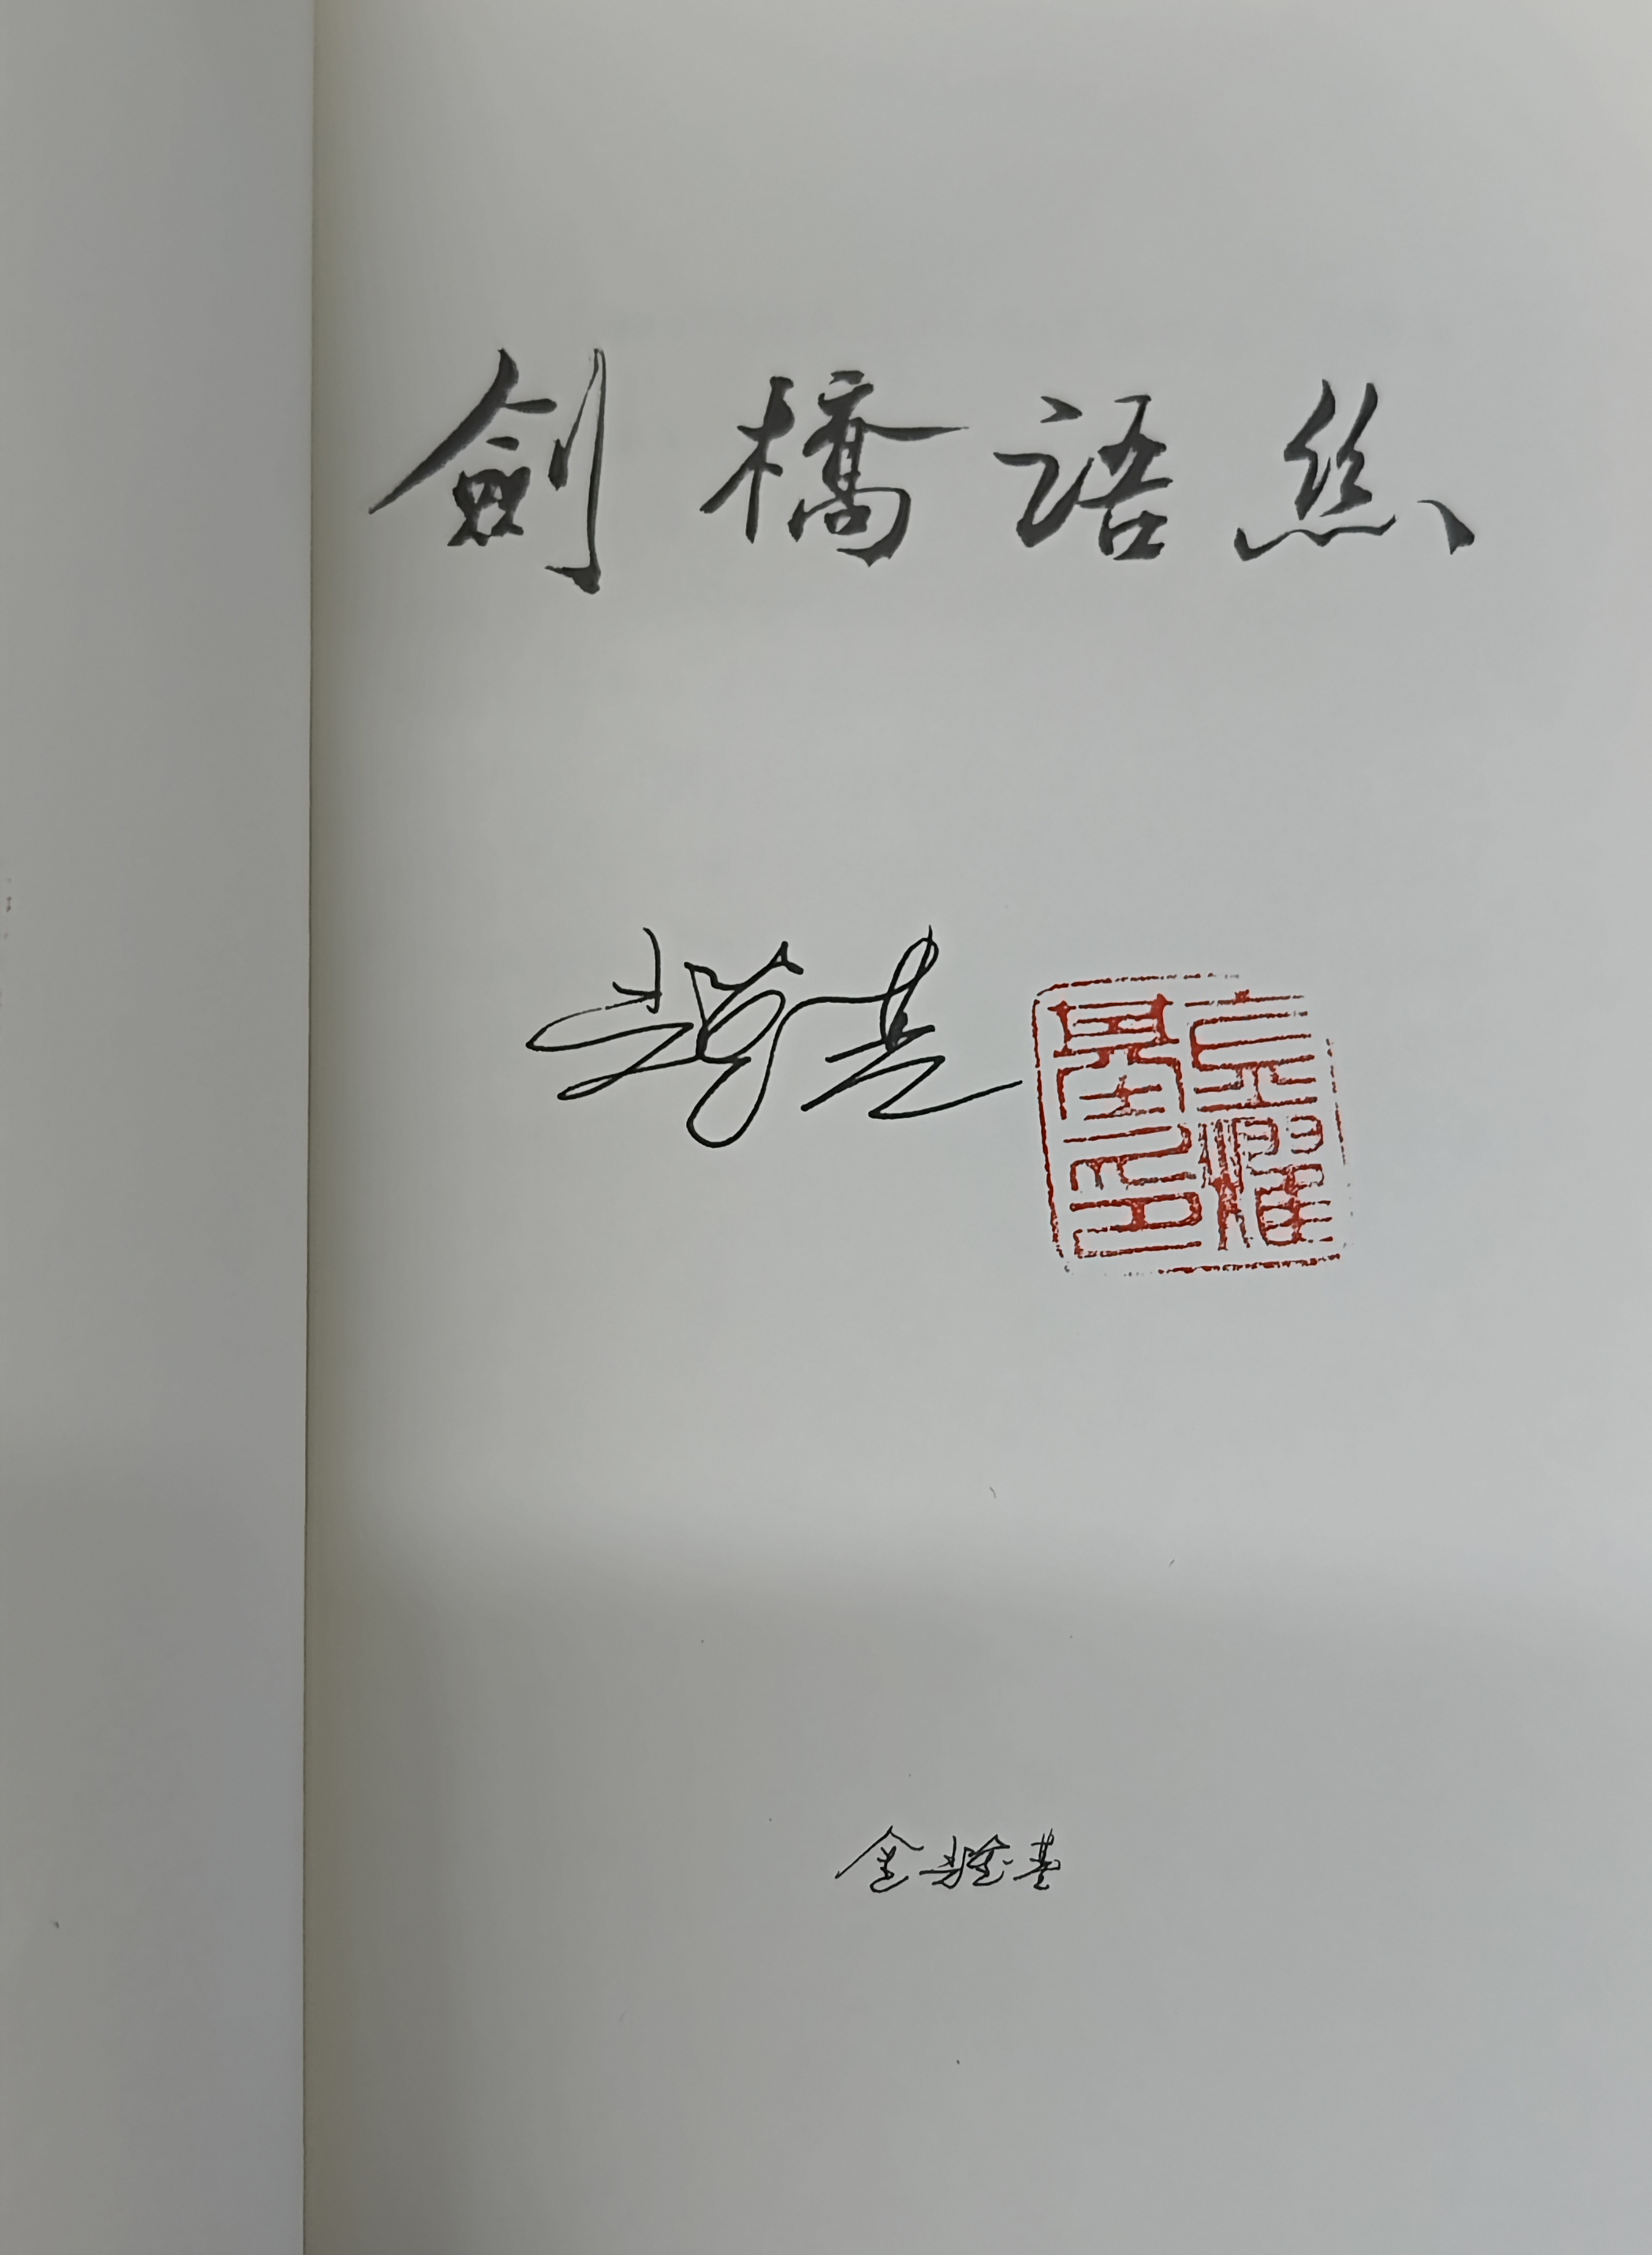 劍橋語絲
耀基
金耀基印
金耀基